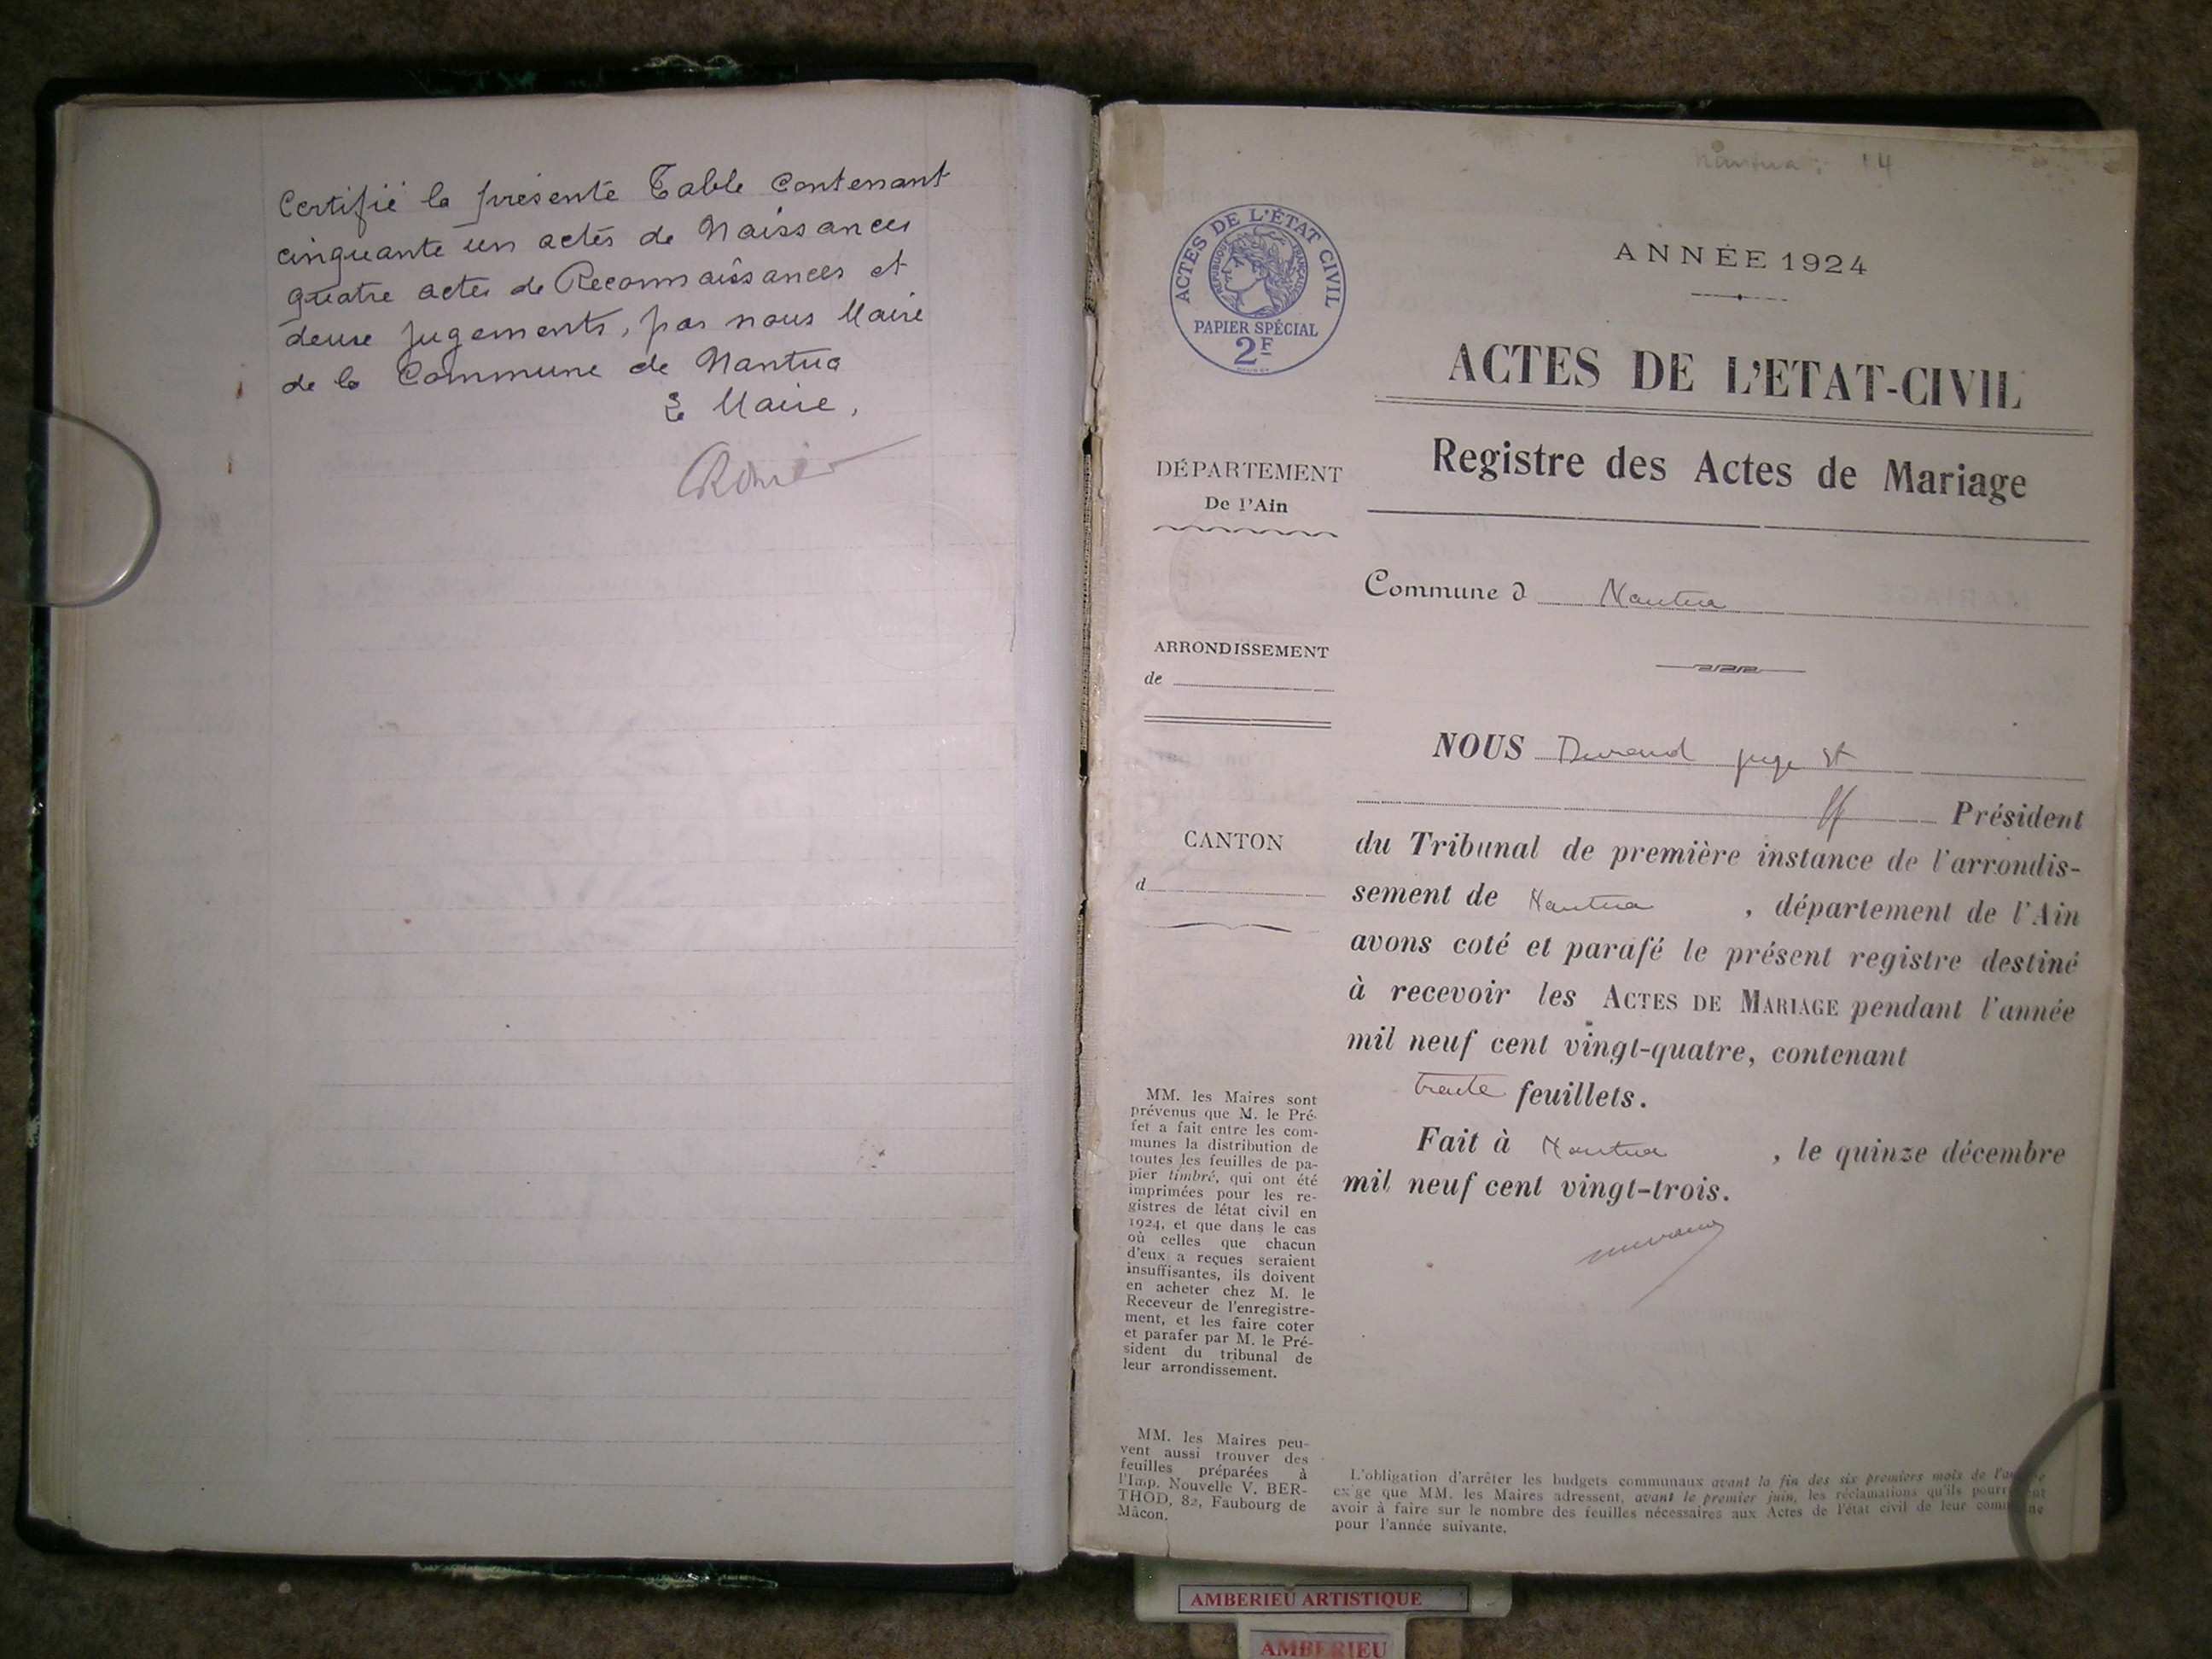 Certifié la présente Table contenant
cinquante un actes de Naissances
quatre actes de Reconnaissances et
deux jugements, par nous Maire
de la Commune de Nantua
Le Maire,
Nantua : 14
ACTES DE L'ÉTAT CIVIL
RÉPUBLIQUE FRANÇAISE
PAPIER SPÉCIAL
2F
ANNÉE 1924
ACTES DE L'ETAT-CIVIL
Registre des Actes de Mariage
DÉPARTEMENT
De l'Ain
Commune d Nantua
ARRONDISSEMENT
de
NOUS Durand juge st
ff Président
CANTON
d
du Tribunal de première instance de l'arrondis-
sement de Nantua , département de l'Ain
avons coté et parafé le présent registre destiné
à recevoir les ACTES DE MARIAGE pendant l'année
mil neuf cent vingt-quatre, contenant
trente feuillets.
Fait à Nantua , le quinze décembre
mil neuf cent vingt-trois.
MM. les Maires sont
prévenus que M. le Pré-
fet a fait entre les com-
munes la distribution de
toutes les feuilles de pa-
pier timbré, qui ont été
imprimées pour les re-
gistres de létat civil en
1924, et que dans le cas
où celles que chacun
d'eux a reçues seraient
insuffisantes, ils doivent
en acheter chez M. le
Receveur de l'enregistre-
ment, et les faire coter
et parafer par M. le Pré-
sident du tribunal de
leur arrondissement.
MM. les Maires peu-
vent aussi trouver des
feuilles préparées à
l'Imp. Nouvelle V. BER-
THOD, 82, Faubourg de
Mâcon.
L'obligation d'arrêter les budgets communaux avant la fin des six premiers mois de l'année
ex ge que MM. les Maires adressent, avant le premier juin, les réclamations qu'ils pourraient
avoir à faire sur le nombre des feuilles nécessaires aux Actes de l'état civil de leur commune
pour l'année suivante.
AMBERIEU ARTISTIQUE
AMBERIEU